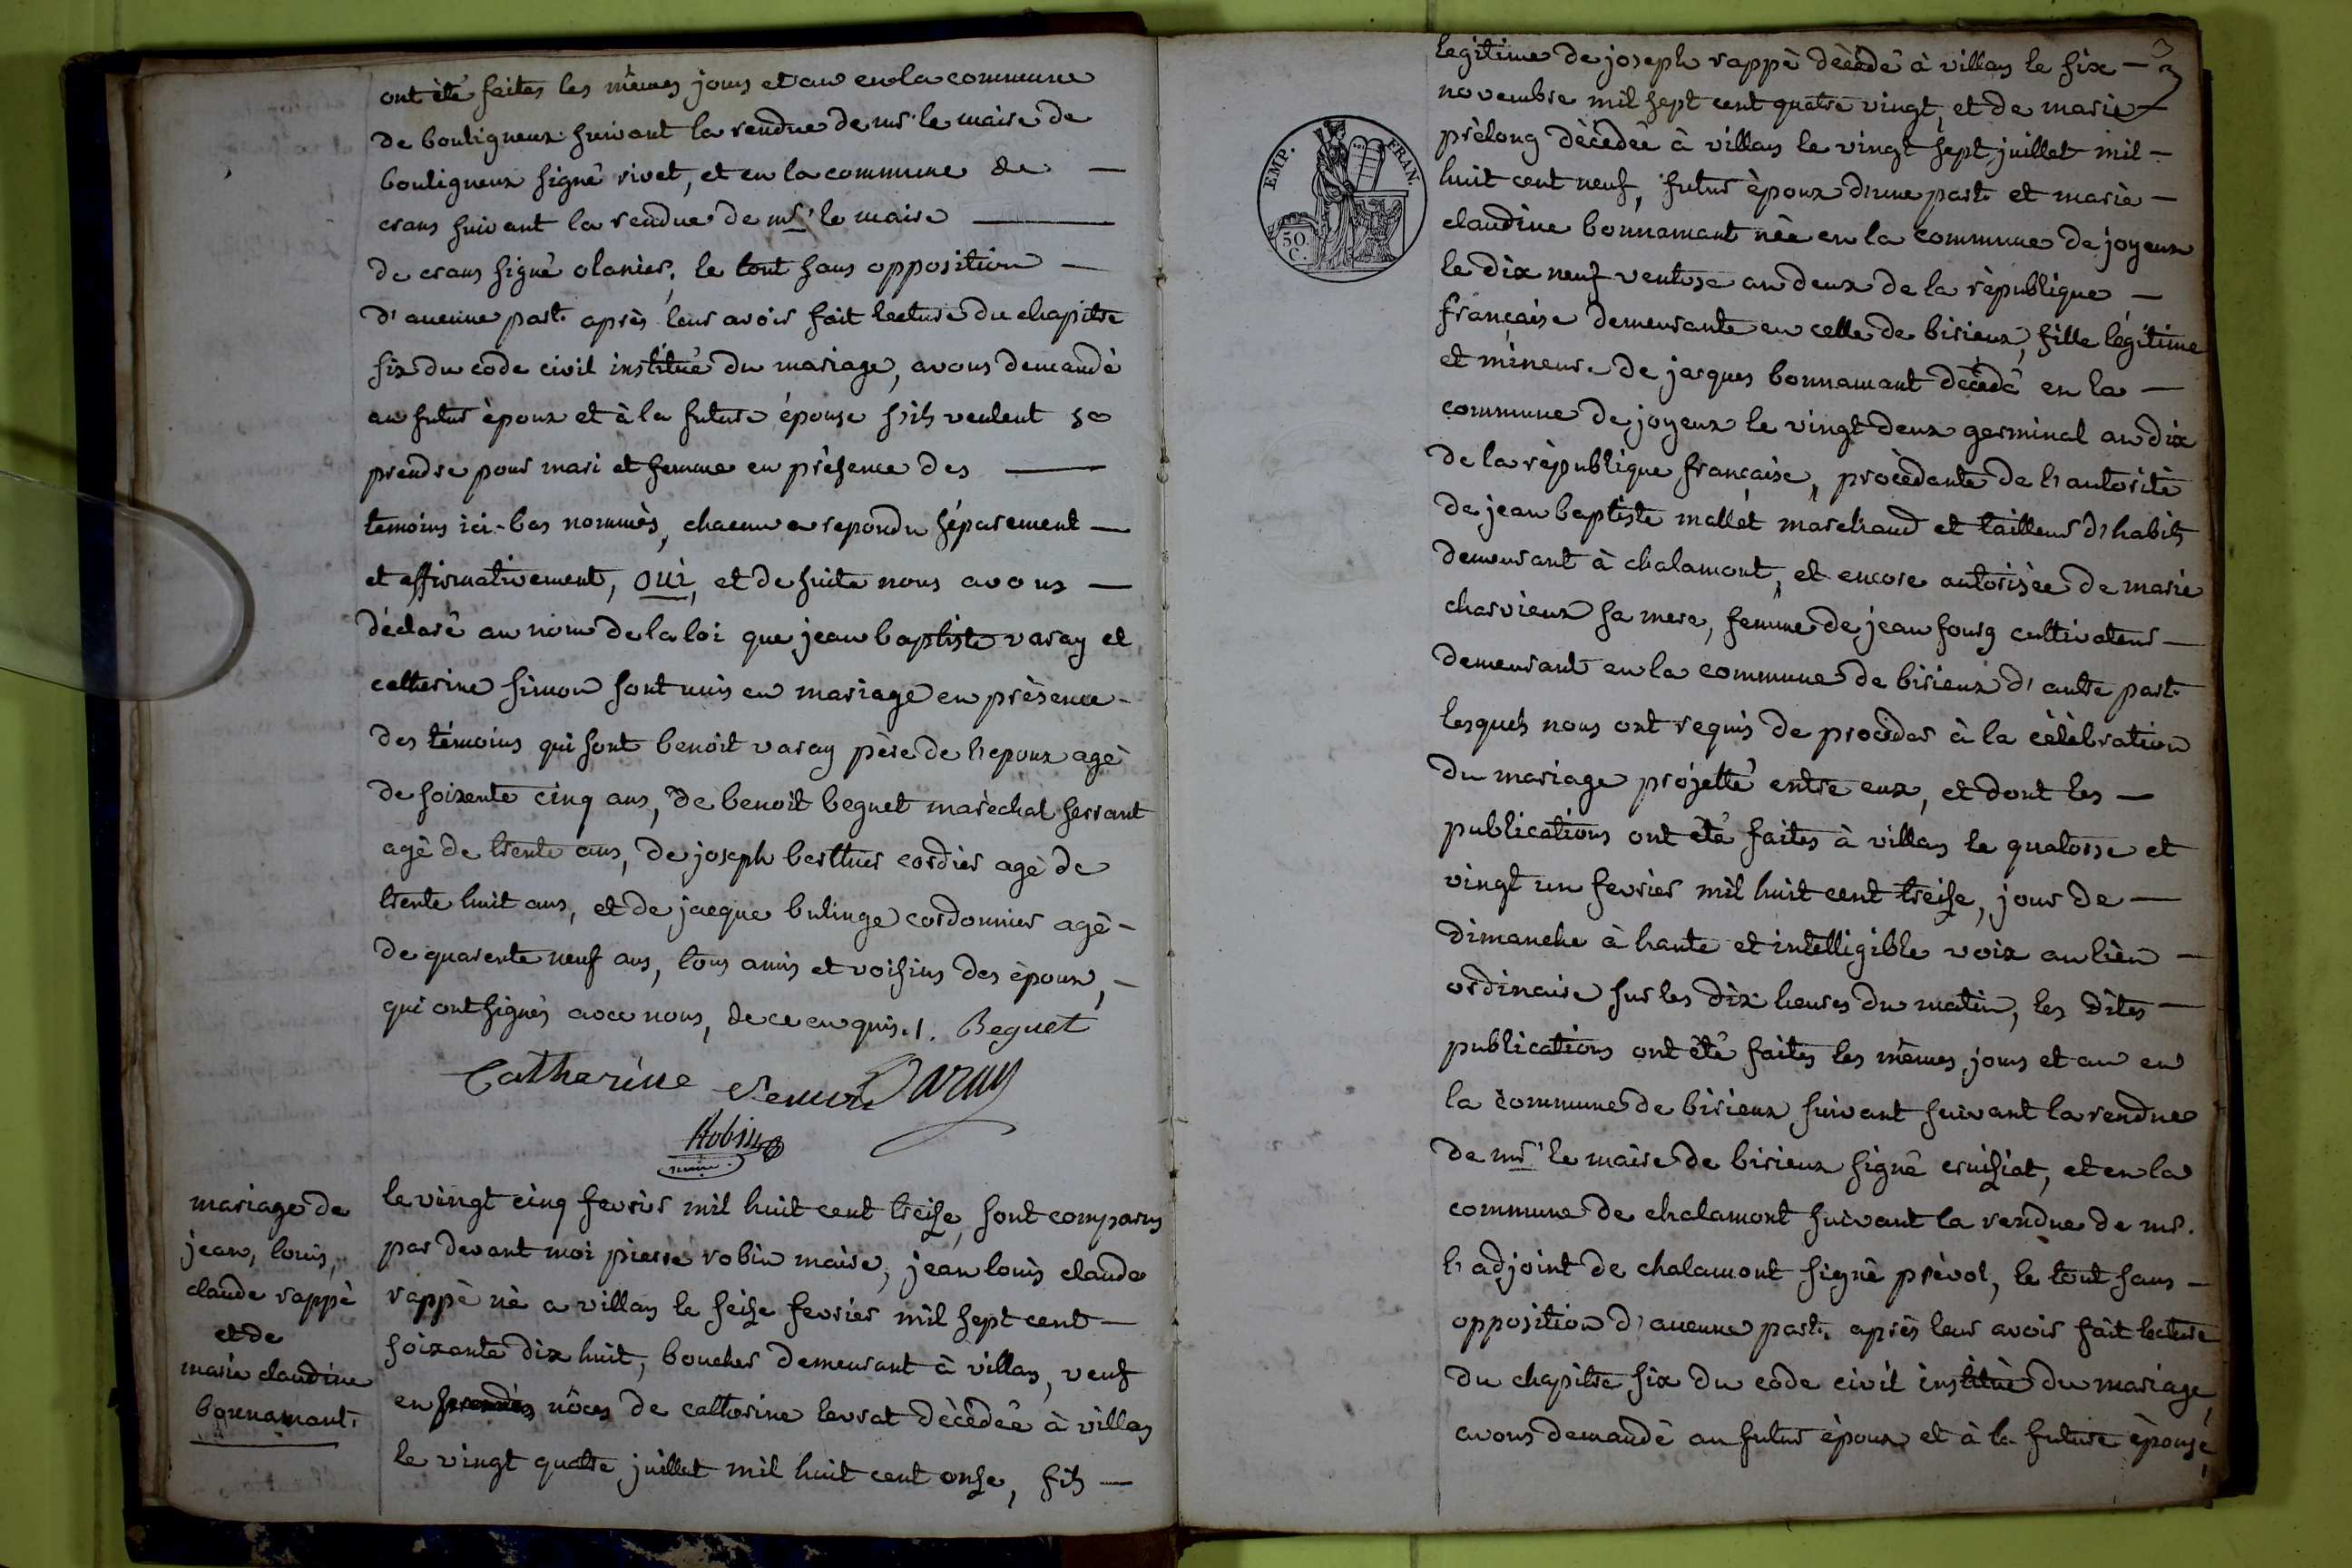 ont été faites les mêmes jours et an en la commune
de bouligneux suivant la rendue de mr. le maire de
bouligneux signé rivet, et en la commune de —
crans suivant la rendue de mr. le maire —
de crans signé olanier, le tout sans opposition —
d'aucune part. après leur avoir fait lecture du chapitre
six du code civil institué du mariage, avons demandé
au futur époux et à la future épouse s'ils veulent se
prendre pour mari et femme en présence des —
temoins ici-bas nommès, chacun a repondu séparement —
et affirmativement, oui, et de suite nous avons —
déclaré au nom de la loi que jean baptiste varay et
catherine simon sont unis en mariage en présence -
des témoins qui sont benoit varay père de l'epoux agè
de soixente cinq ans, de benoit beguet marechal ferrant
agè de trente ans, de joseph berthier cordier agè de
trente huit ans, et de jacque bulinge cordonnier agè -
de quarente neuf ans, tous amis et voisins des époux, -
qui ont signés avec nous, de ce enquis ./. Beguet
Catherine Semon Varay
Robin
maire
mariage de
jean, louis,
claude rappè
et de
marie claudine
bonnamant.
le vingt cinq fevrier mil huit cent treise, sont comparus
par devant moi pierre robin maire, jean louis claude
rappè né a villars le seise fevrier mil sept cent —
soixante dix huit, boucher demeurant à villars, veuf
en nôces de catherine levrat dècèdeè à villars
le vingt quatre juillet mil huit cent onse, fils —
3
legitime de joseph rappè dècèdé à villars le six —
novembre mil sept cent quatre vingt, et de marie —
prèlong dècèdeè à villars le vingt sept juillet mil —
huit cent neuf, futur époux d'une part. et marie —
claudine bonnamant nèe en la commune de joyeux
le dix neuf ventose an deux de la rèpublique —
française demeurante en celle de birieux, fille légitime
et mineure de jacques bonnamant dècèdé en la —
commune de joyeux le vingt deux germinal an dix
de la rèpublique française, procèdente de l'autorité
de jean baptiste mallet marchand et tailleur d'habits
demeurant à chalamont, et encore autorisèe de marie
charvieux sa mere, femme de jean fourg cultivateur —
demeurant en la commune de birieux d'autre part.
lesquels nous ont requis de procèder à la cèlèbration
du mariage projetté entre eux, et dont les —
publications ont été faites à villars le quatorse et
vingt un fevrier mil huit cent treise, jour de —
dimanche à haute et intelligible voix au lieu —
ordinaire sur les dix heures du matin, les dites —
publications ont été faites les mêmes jours et an en
la commune de birieux suivant suivant la rendue
de mr. le maire de birieux signé cruisiat, et en la
commune de chalamont suivant la rendue de mr.
l'adjoint de chalamont signé prèvol, le tout sans —
opposition d'aucune part. après leur avoir fait lecture
du chapitre six du code civil institué du mariage,
avons demandé au futur époux et à la future épouse,
EMP. FRAN.
50.
C.